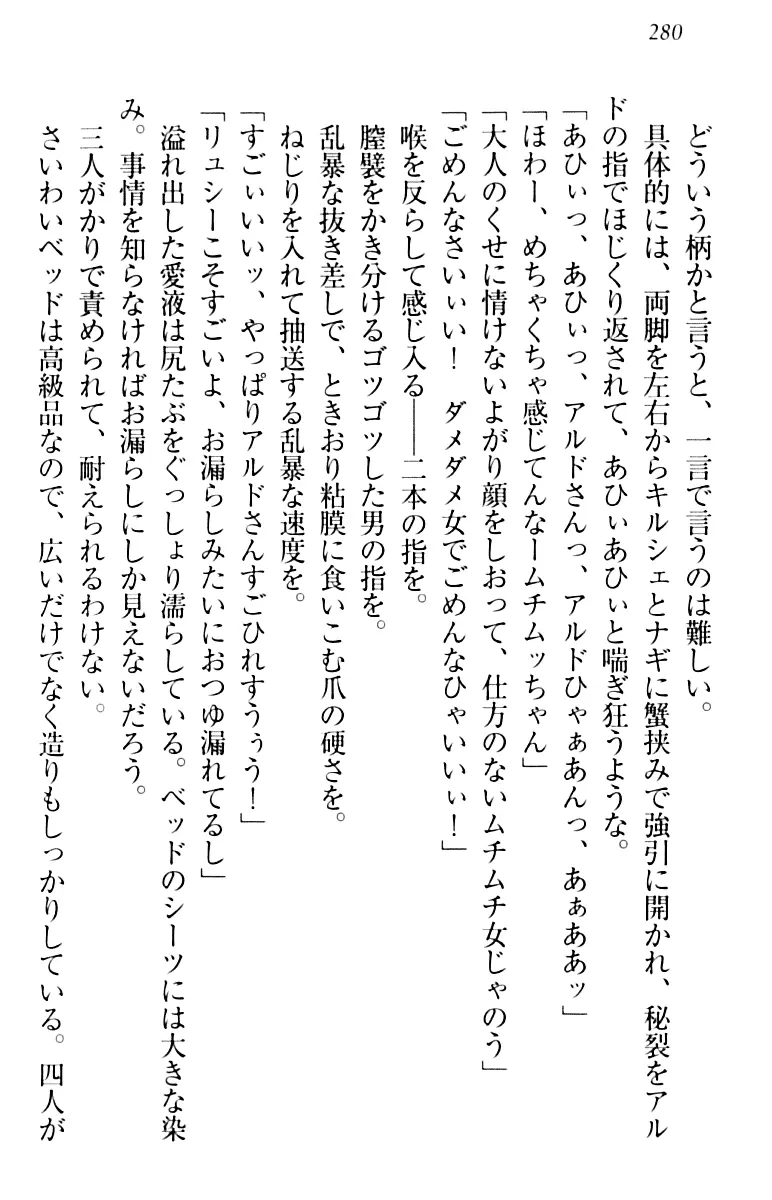 280
どういう柄かと言うと、一言で言うのは難しい。
具体的には、両脚を左右からキルシェとナギに蟹挟みで強引に開かれ、秘裂をアル
ドの指でほじくり返されて、あひぃあひぃと喘ぎ狂うような。
「あひぃっ、あひぃっ、アルドさんっ、アルドひゃぁあんっ、あぁああッ」
「ほわー、めちゃくちゃ感じてんなームチムッちゃん」
「大人のくせに情けないよがり顔をしおって、仕方のないムチムチ女じゃのう」
「ごめんなさいぃい！　ダメダメ女でごめんなひゃいいぃ！」
喉を反らして感じ入る――二本の指を。
膣襞をかき分けるゴツゴツした男の指を。
乱暴な抜き差しで、ときおり粘膜に食いこむ爪の硬さを。
ねじりを入れて抽送する乱暴な速度を。
「すごぃいいッ、やっぱりアルドさんすごひれすうぅう！」
「リュシーこそすごいよ、お漏らしみたいにおつゆ漏れてるし」
溢れ出した愛液は尻たぶをぐっしょり濡らしている。ベッドのシーツには大きな染
み。事情を知らなければお漏らしにしか見えないだろう。
三人がかりで責められて、耐えられるわけない。
さいわいベッドは高級品なので、広いだけでなく造りもしっかりしている。四人が